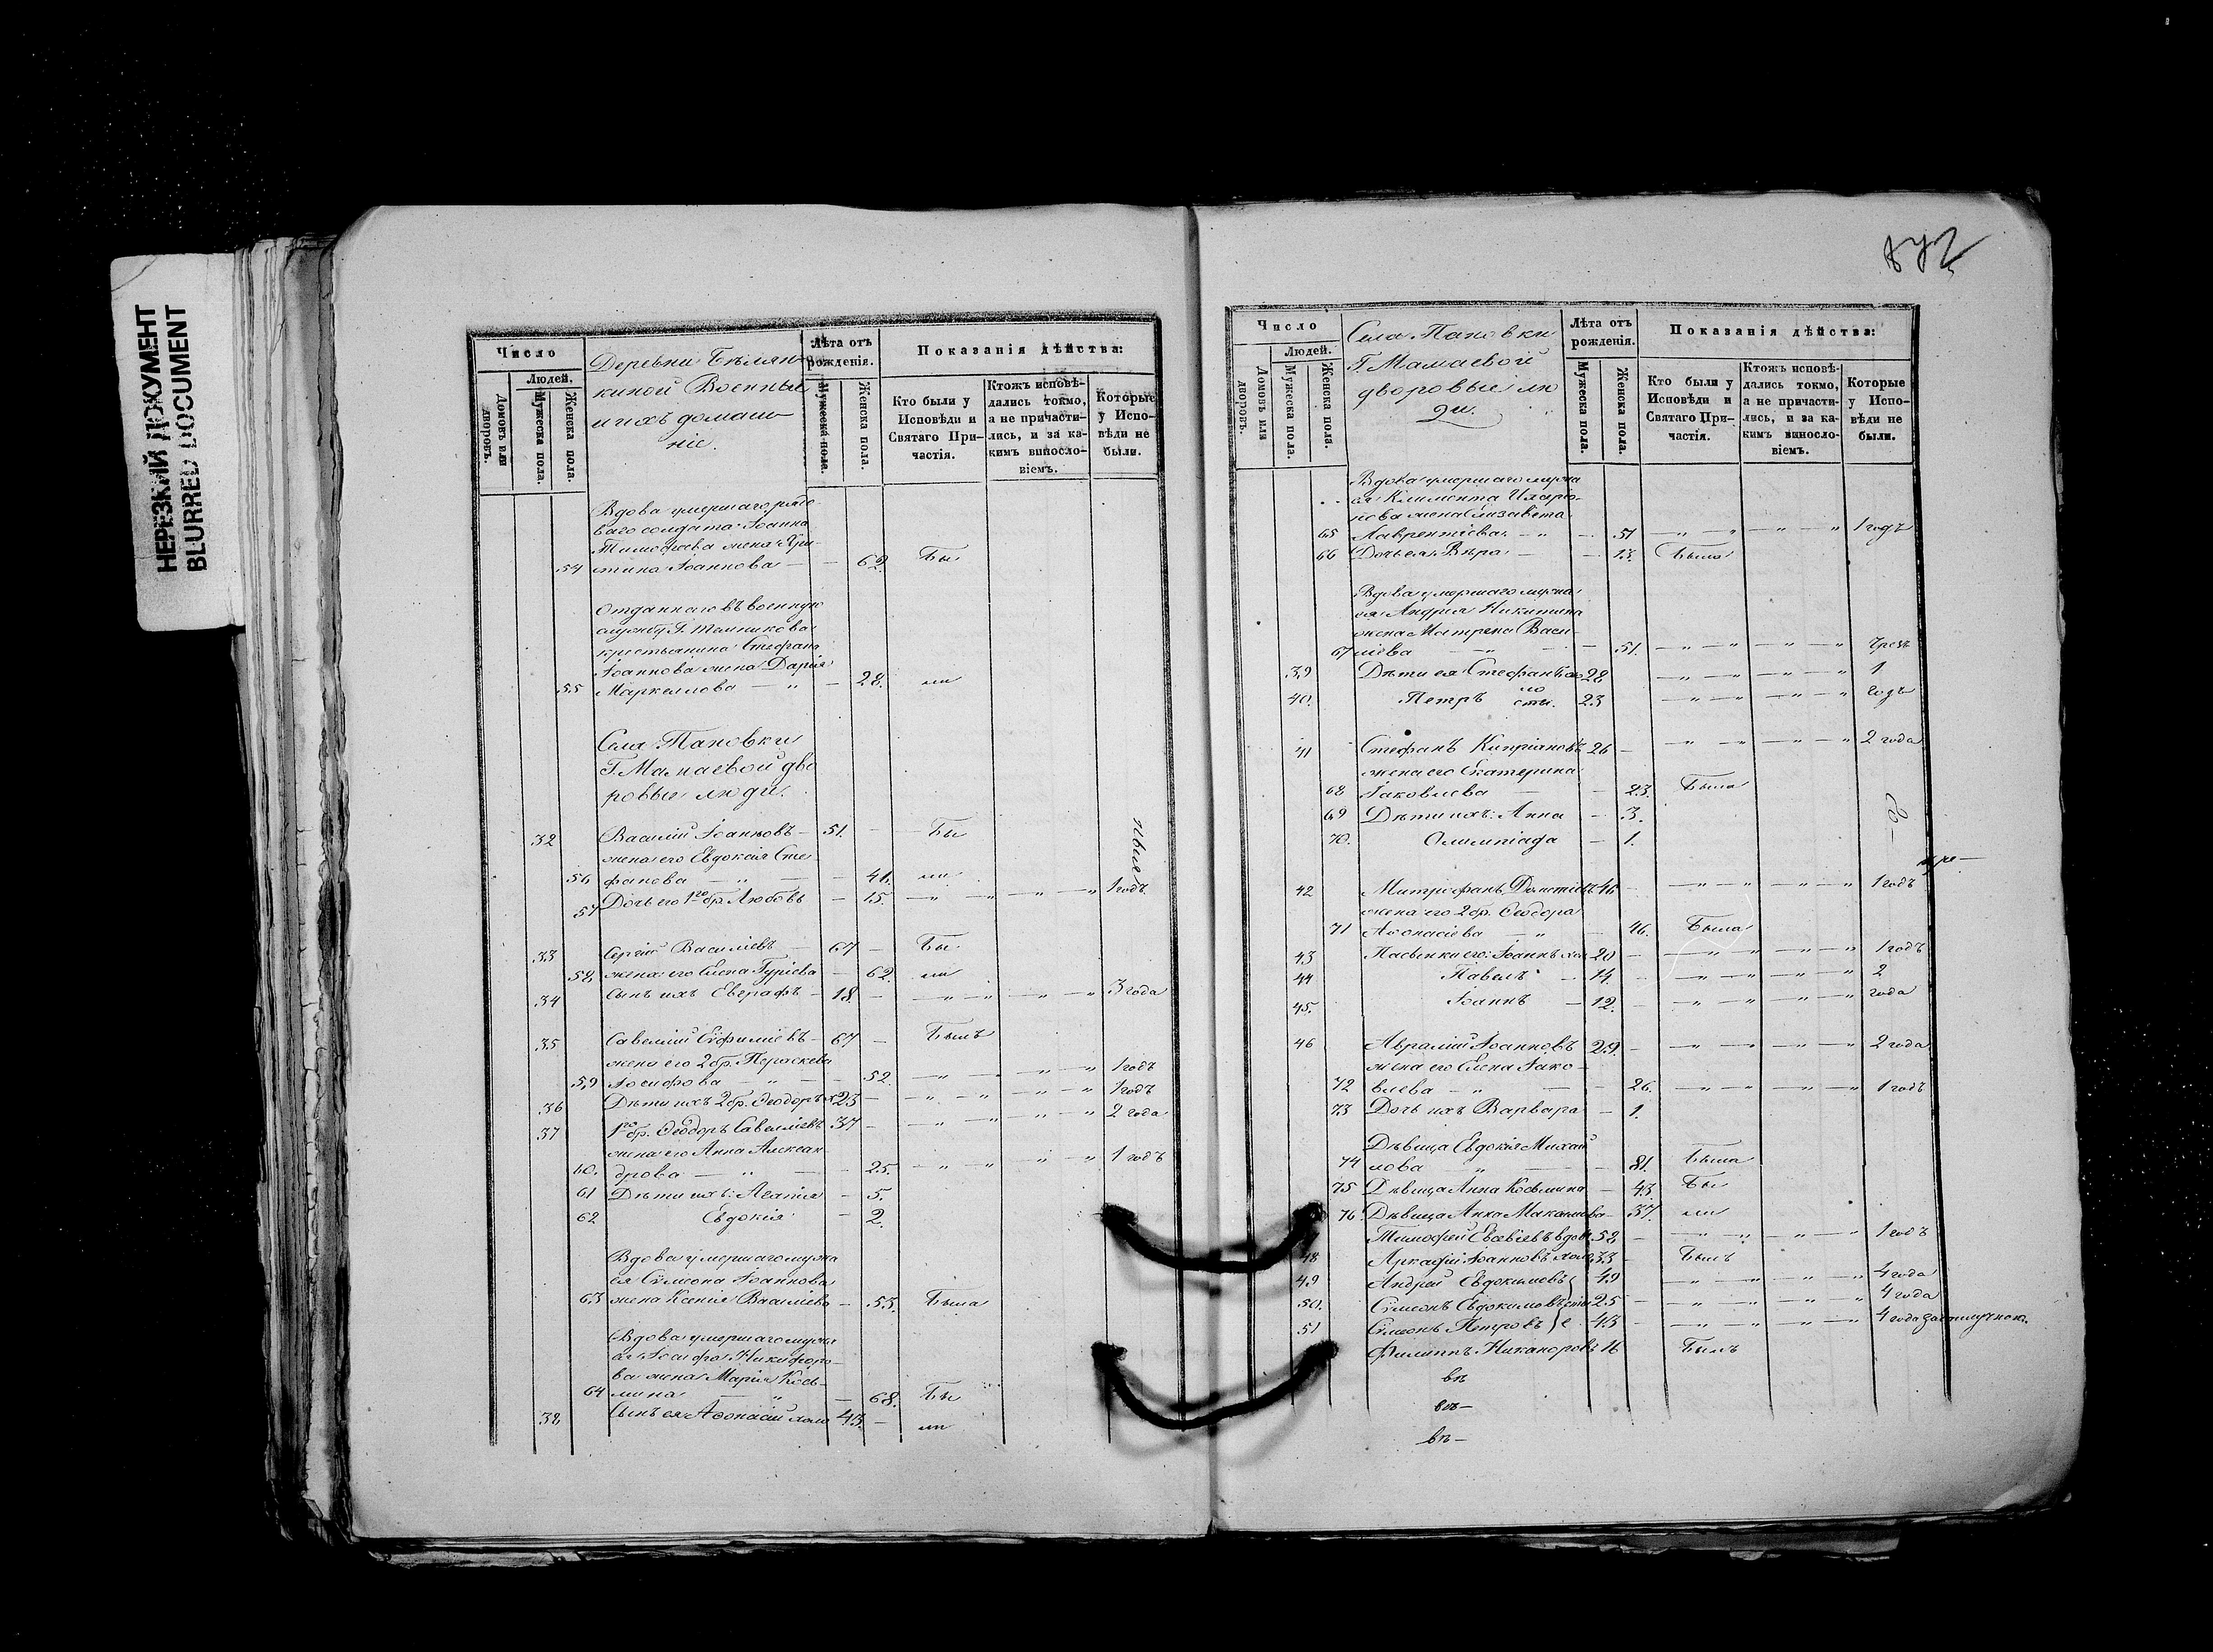 НЕРЕЗКИЙ ДОКУМЕНТ
BLURRED DOCUMENT
Число
Людей.
Домовъ или дворовъ.
Мужеска пола.
Женска пола.
Деревни Бѣлян-
киной Военные
и ихъ домаш-
ніе.
Лѣта отъ рожденія.
Мужеска пола.
Женска пола.
Показанія дѣйства:
Кто были у Исповѣди и Святаго При-частія.
Ктожъ исповѣ-дались токмо, а не причасти-лись, и за ка-кимъ винослo-віемъ.
Которые у Испо-вѣди не были.
Вдова умершаго рядо-
ваго солдата Іоанна
Тимофеева жена Хри-
54 стина Іоаннова — — 62. Бы
Отданнаго въ военную
службу Г. Темникова
крестьянина Стефана
Іоаннова жена Дарія
55 Маркеллова — „ — 28. ли
Села Пановки
Г. Мамаевой дво
ровые люди.
32 Василій Іоанновъ — 51. — Бы
жена его Евдокія Сте-
56 фанова — „ — — 41. ли
57 Дочь его 1го бр. Любовь — 15. — „ — „ — „ — „ 1 годъ
33 Сергій Василіевъ — 67 — Бы
58 жена его Елена Гуріева — 62. ли
34 Сынъ ихъ Евграфъ — 18. — — „ — „ — „ — „ 3 года
35 Савелій Ефиміевъ — 67 — Былъ
жена его 2 бр. Параскева
59 Іосифова — „ — — 52. — „ — „ — „ — „ 1 годъ
36 Дѣти ихъ 2 бр. Ѳеодоръ х 23 — — „ — „ — „ — „ 1 годъ
37 1го бр. Ѳеодоръ Савеліевъ 37 — — „ — „ — „ — „ 2 года
жена его Анна Алексан
60. дрова — „ — — 25. — „ — „ — „ — „ 1 годъ
61 Дѣти ихъ: Агапія — 5.
62 Евдокія — 2.
Вдова умершаго мужа
ея Сѵмеона Іоаннова
63 жена Ксенія Василіева — 53. Была
Вдова умершаго мужа
ея Іосифа Никифоро-
ва жена Марія Козь-
64 мина — „ — 68. Бы
38 Сынъ ея Аѳонасій холо 43. — ли
Число
Людей.
Домовъ или дворовъ.
Мужеска пола.
Женска пола.
Села Пановки
Г. Мамаевой
дворовые лю
ди.
Лѣта отъ рожденія.
Мужеска пола.
Женска пола.
Показанія дѣйства:
Кто были у Исповѣди и Святаго При-частія.
Ктожъ исповѣ-дались токмо, а не причасти-лись, и за ка-кимъ винослo-віемъ.
Которые у Испо-вѣди не были.
Вдова умершаго мужа
ея Климента Иларіо-
нова жена Елизавета
65 Лаврентіева — „ — 51 — „ — „ — „ — „ 1 годъ
66 Дочь ея Вѣра — — 13. Была
Вдова умершаго мужа
ея Андрея Никитина
жена Матрена Васи-
67 ліева — „ — — 51. — „ — „ — „ — „
39 Дѣти ея: Стефанъ 28 — „ — „ — „ — „ 1
40. Петръ 23 — „ — „ — „ — „ годъ
41 Стефанъ Кипріановъ 26 — — „ — „ — „ — „ 2 года
жена его Екатерина
68 Іаковлева — — 23. Была
69 Дѣти ихъ: Анна — 3.
70. Олимпіада — 1.
42 Митрофанъ 46 — — „ — „ — „ — „ 1 годъ
жена его 2 бр. Ѳеодора
71 Аѳонасіева — „ — — 46. Была
43 Пасынки его: Іоаннъ хол 20 — — „ — „ — „ — „ 1 годъ
44 Павелъ — 14. — — „ — „ — „ — „ 2
45. Іоаннъ — 12. — — „ — „ — „ — „ года
46 Аврамій Іоанновъ 29. — — „ — „ — „ — „ 2 года
жена его Елена Іако-
72 влева — „ — — 26. — „ — „ — „ — „ 1 годъ
73 Дочь ихъ Варвара — 1.
Дѣвица Евдокія Михай
74 лова „ — — 81. Была
75 Дѣвица Анна Козьмина — 43. Бы
76. Дѣвица Анна — 37. ли
Тимофей Евсевіевъ вдов. 58 — — „ — „ — „ — „ 1 годъ
48 Аркадій Іоанновъ холо 33 — Былъ
49 Андрей Евдокимовъ 49 — „ — „ — „ — „ 4 года
50. Сѵмеонъ Евдокимовъ 25 — — „ — „ — „ — „ 4 года
51 Сѵмеонъ Петровъ 43 — — „ — „ — „ — „ 4 года
Филиппъ Никаноровъ 16 Былъ